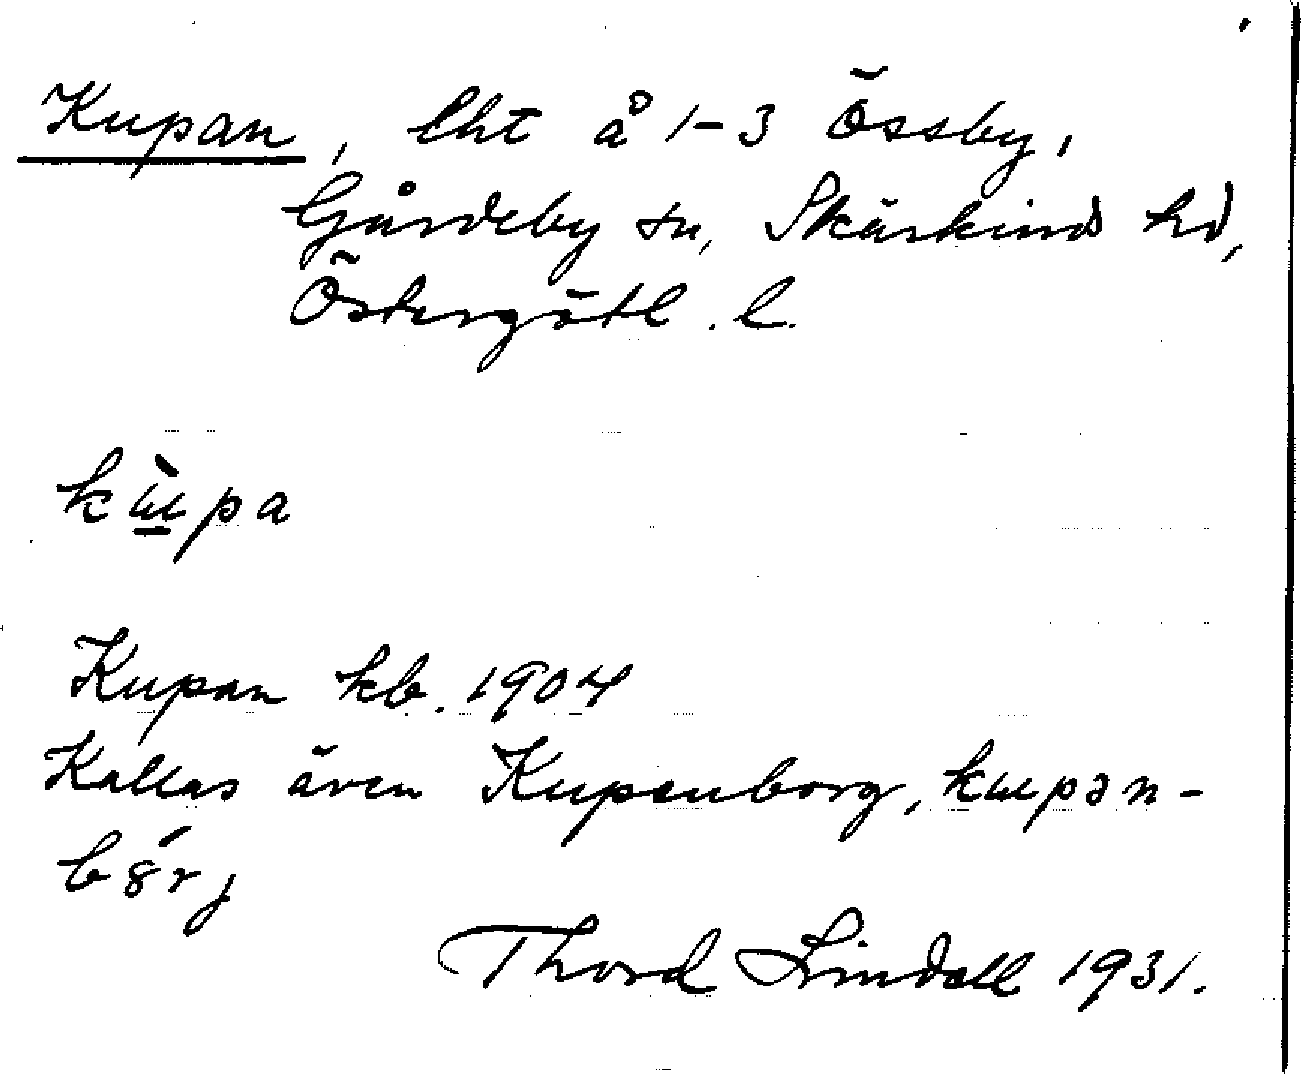 Kupan, lht å 1-3 Össby,
Gårdeby sn, Skärkinds hd,
Östergötl. l.
kɯ̀pa
Kupan kb. 1904
Kallas även Kupenborg, kɯpən-
b8́rj
Thord Lindell 1931.